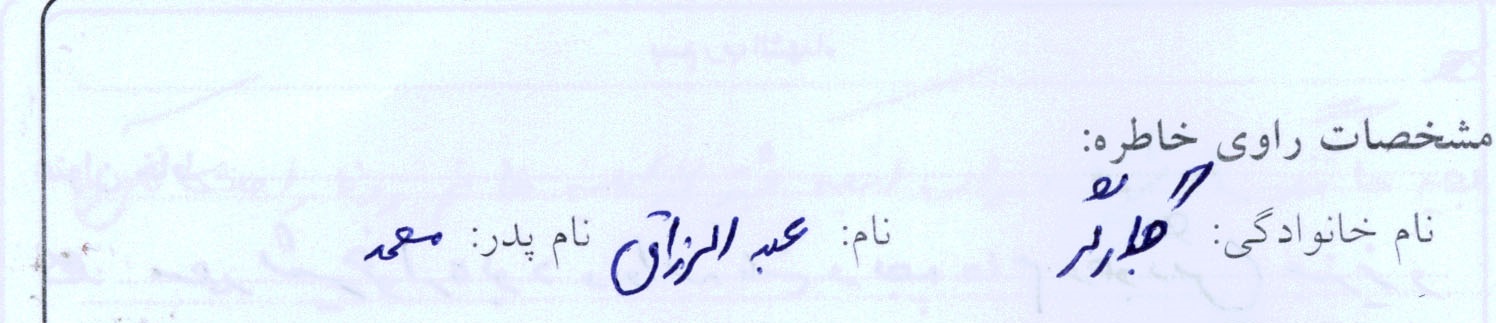 مشخصات راوی خاطره:
نام خانوادگی: نام: عبدالرزاق نام پدر: محمد